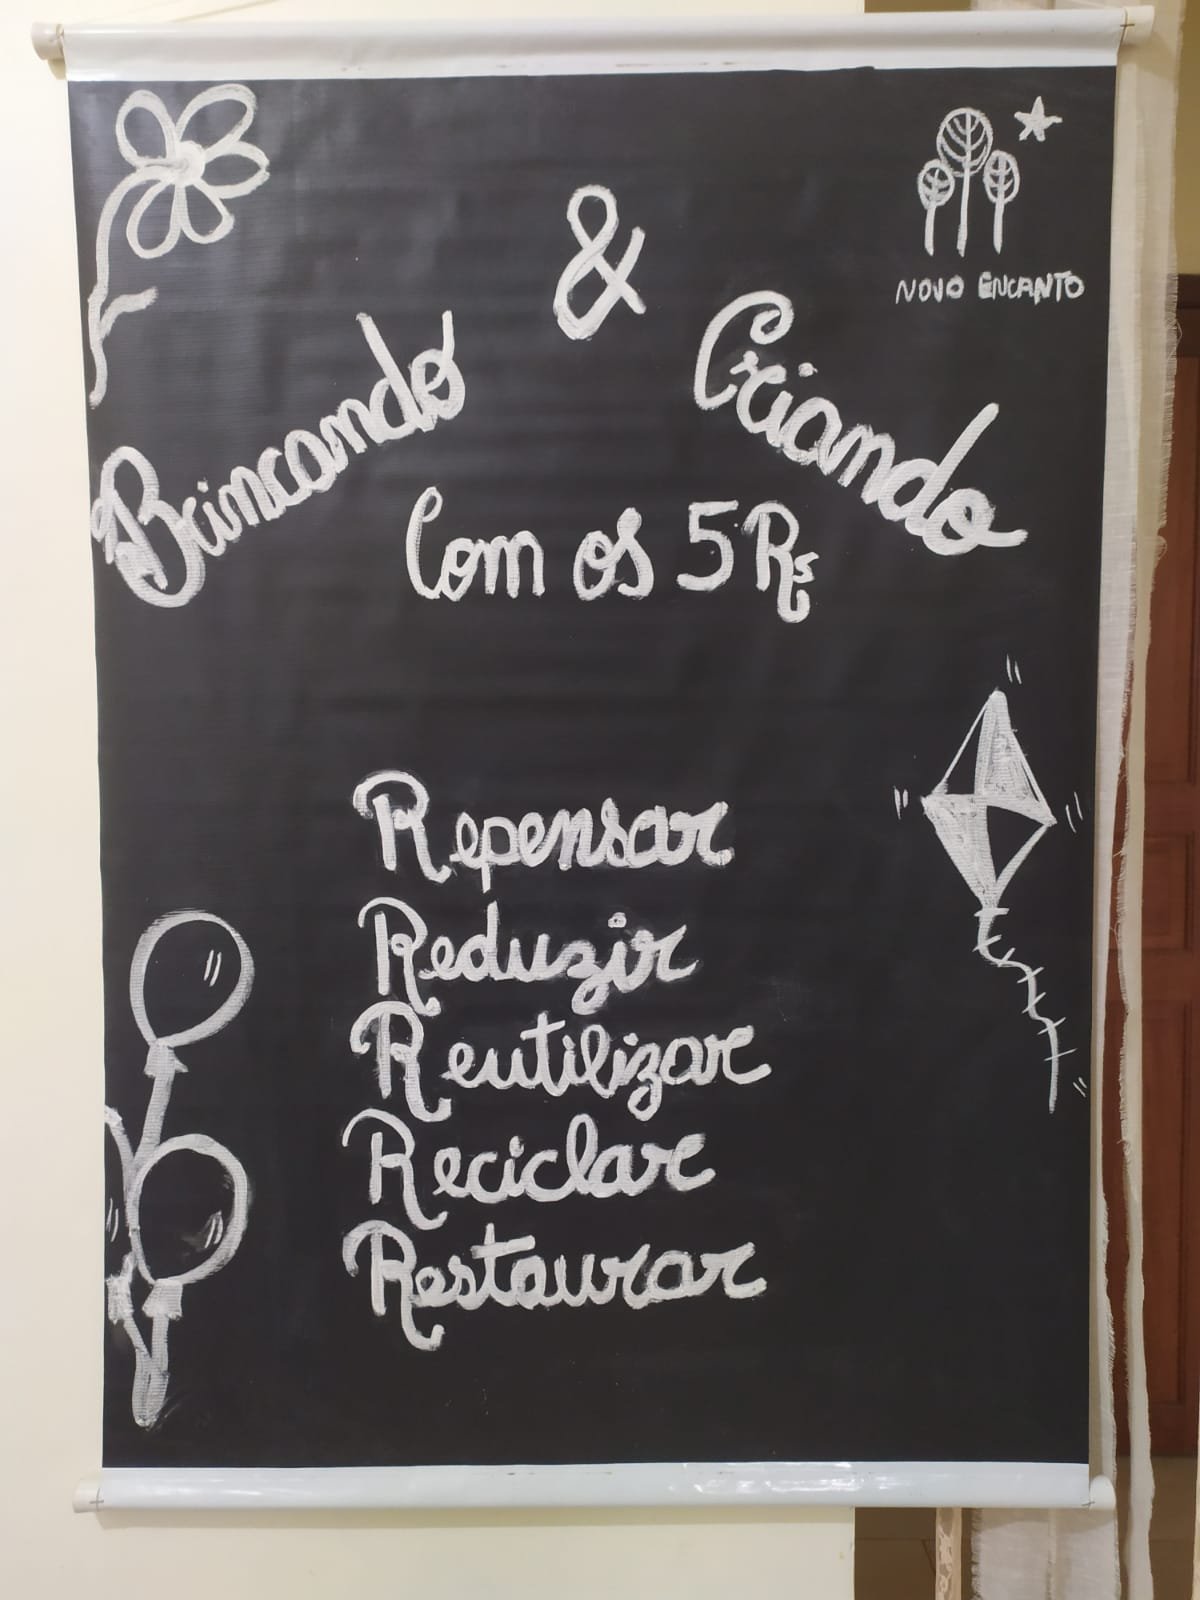 NOVO ENCANTO
Brincando & Criando
Com os 5 Rs
Repensar
Reduzir
Reutilizar
Reciclar
Restaurar